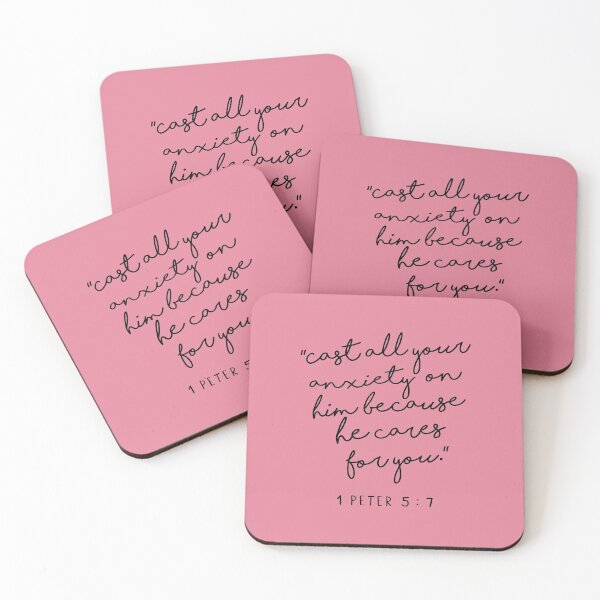 "cast all your
anxiety on
him because
es
u."
"cast all your
anxiety on
him because
he cares
for you."
"cast all your
anxiety on
him because
he cares
for you
1 PETER 5
"cast all your
anxiety on
him because
he cares
for you."
1 PETER 5:7